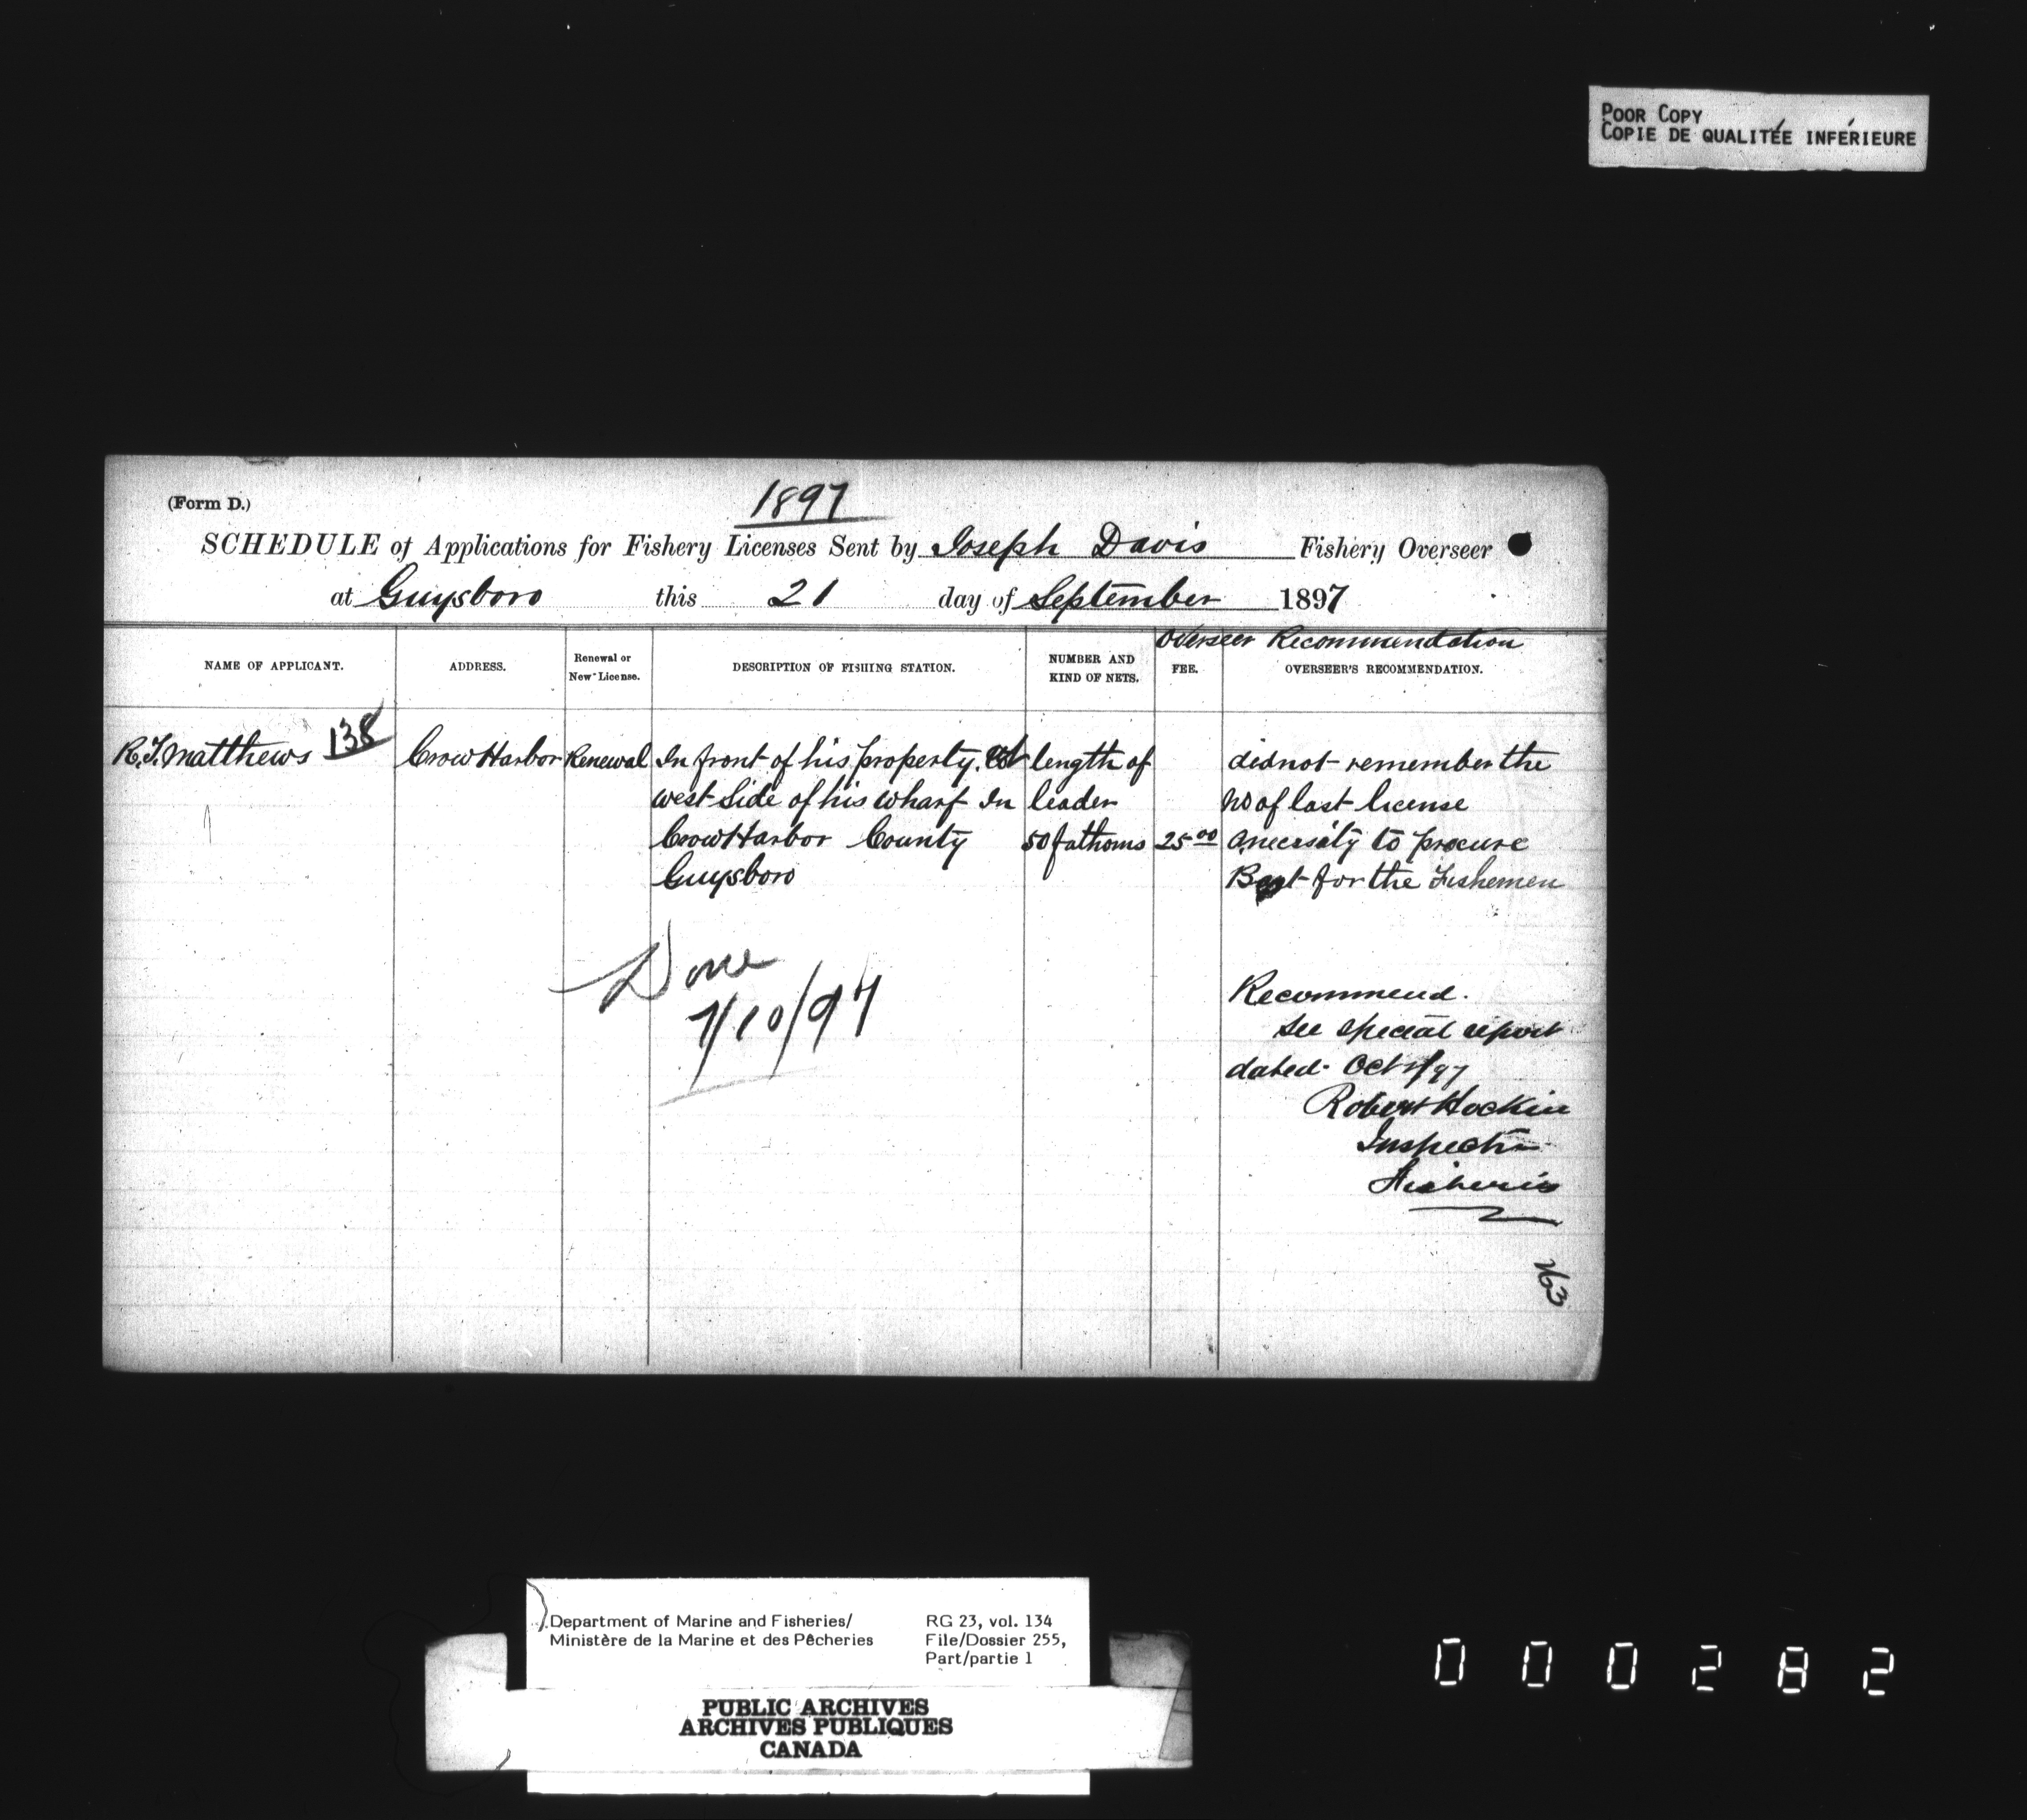 POOR COPY
COPIE DE QUALITÉE INFÉRIEURE
(Form D.)
1897
SCHEDULE of Applications for Fishery Licenses Sent by Joseph Davis Fishery Overseer
at Guysboro this 21 day of September 1897
Overseer Recommendation
NAME OF APPLICANT. ADDRESS. Renewal or New License. DESCRIPTION OF FISHING STATION. NUMBER AND KIND OF NETS. FEE. OVERSEER'S RECOMMENDATION.
R. T. Matthews 138 Crow Harbor Renewal In front of his property. length of did not remember the
west Side of his wharf In leader no of last license
Crow Harbor County 50 fathoms 25 00 a necesity to procure
Guysboro for the Fishemen
Done
7/10/97
Recommend.
See special report
dated Oct /97
Robert Hockin
Inspector
Fisheries
263
Department of Marine and Fisheries/ RG 23, vol. 134
Ministère de la Marine et des Pêcheries File/Dossier 255,
Part/partie 1
PUBLIC ARCHIVES
ARCHIVES PUBLIQUES
CANADA
000282